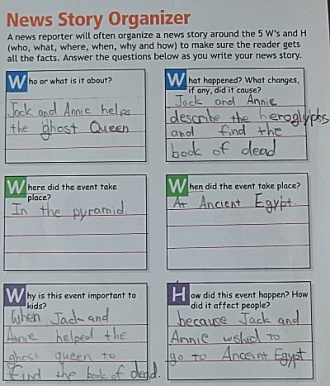 News Story Organizer
A news reporter will often organize a news story around the 5 W's and H
(who, what, where, when, why and how) to make sure the reader gets
all the facts. Answer the questions below as you write your news story.
Who or what is it about?
Jack and Annie helps
the ghost Queen
What happened? What changes,
if any, did it cause?
Jack and Annie
describe the hieroglyphs
and find the
book of dead
Where did the event take
place?
In the pyramid.
When did the event take place?
At Ancient Egypt.
Why is this event important to
kids?
When Jack and
Annie helped the
ghost queen to
find the book of dead.
How did this event happen? How
did it affect people?
because Jack and
Annie wished to
go to Ancient Egypt